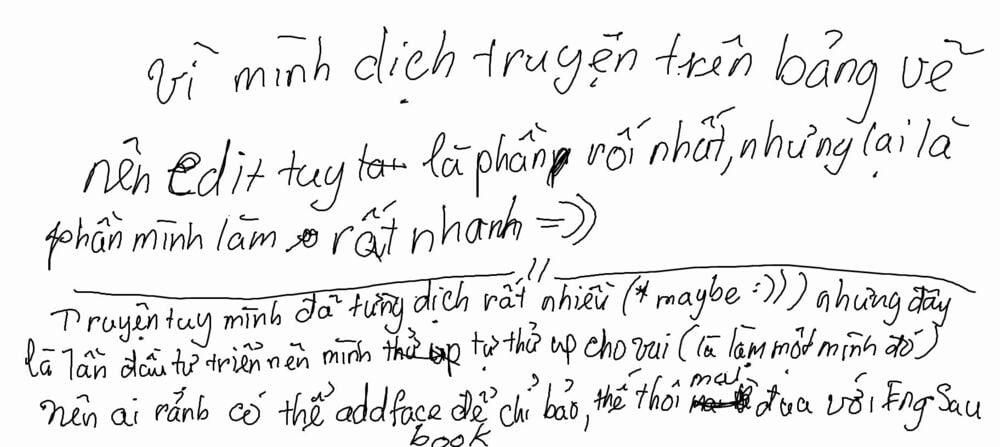 vì mình dịch truyện trên bảng vẽ
nên edit tuy là phần rối nhất, nhưng lại là
phần mình làm rất nhanh =))
//
Truyện tuy mình đã từng dịch rất nhiều (*maybe :))) nhưng đây
là lần đầu tự triển nên mình tự thử up cho vui (là làm một mình đó)
nên ai rảnh có thể add face để chỉ bảo, thế thôi mai đua với Eng Sau
book